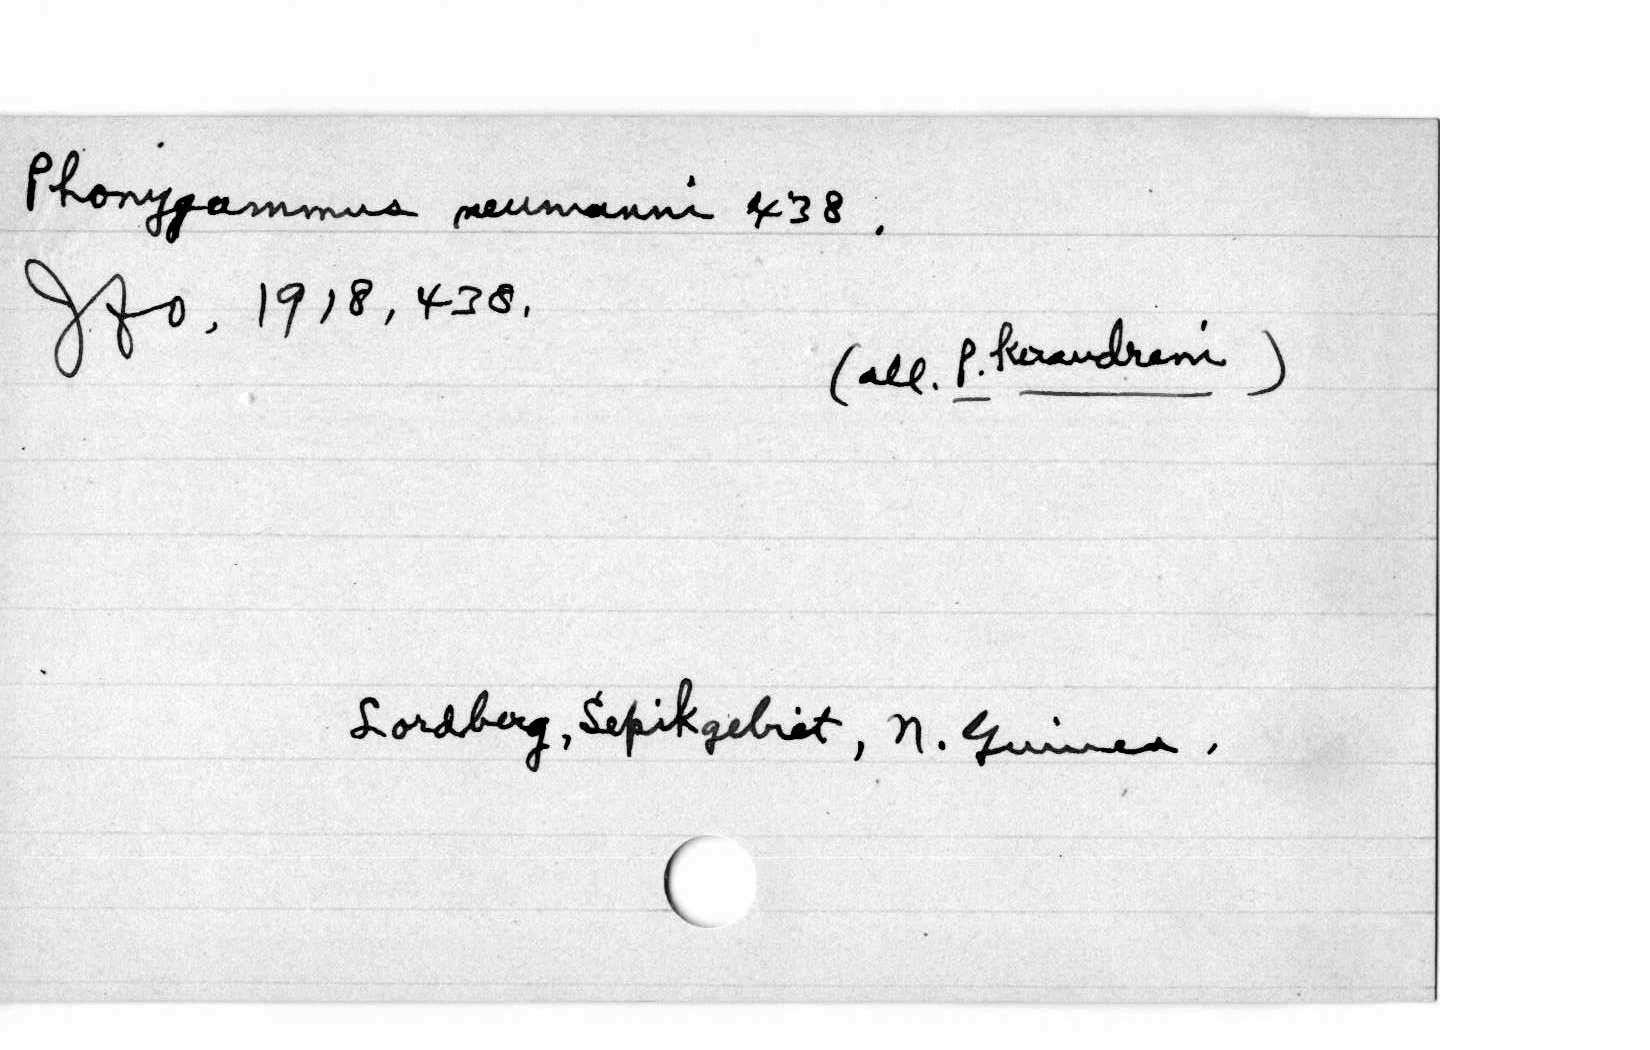 Phonygammus neumanni 438.
JfO, 1918, 438.
(all. P. keraudreni)
Lordberg, Sepikgebiet, N. Guinea.